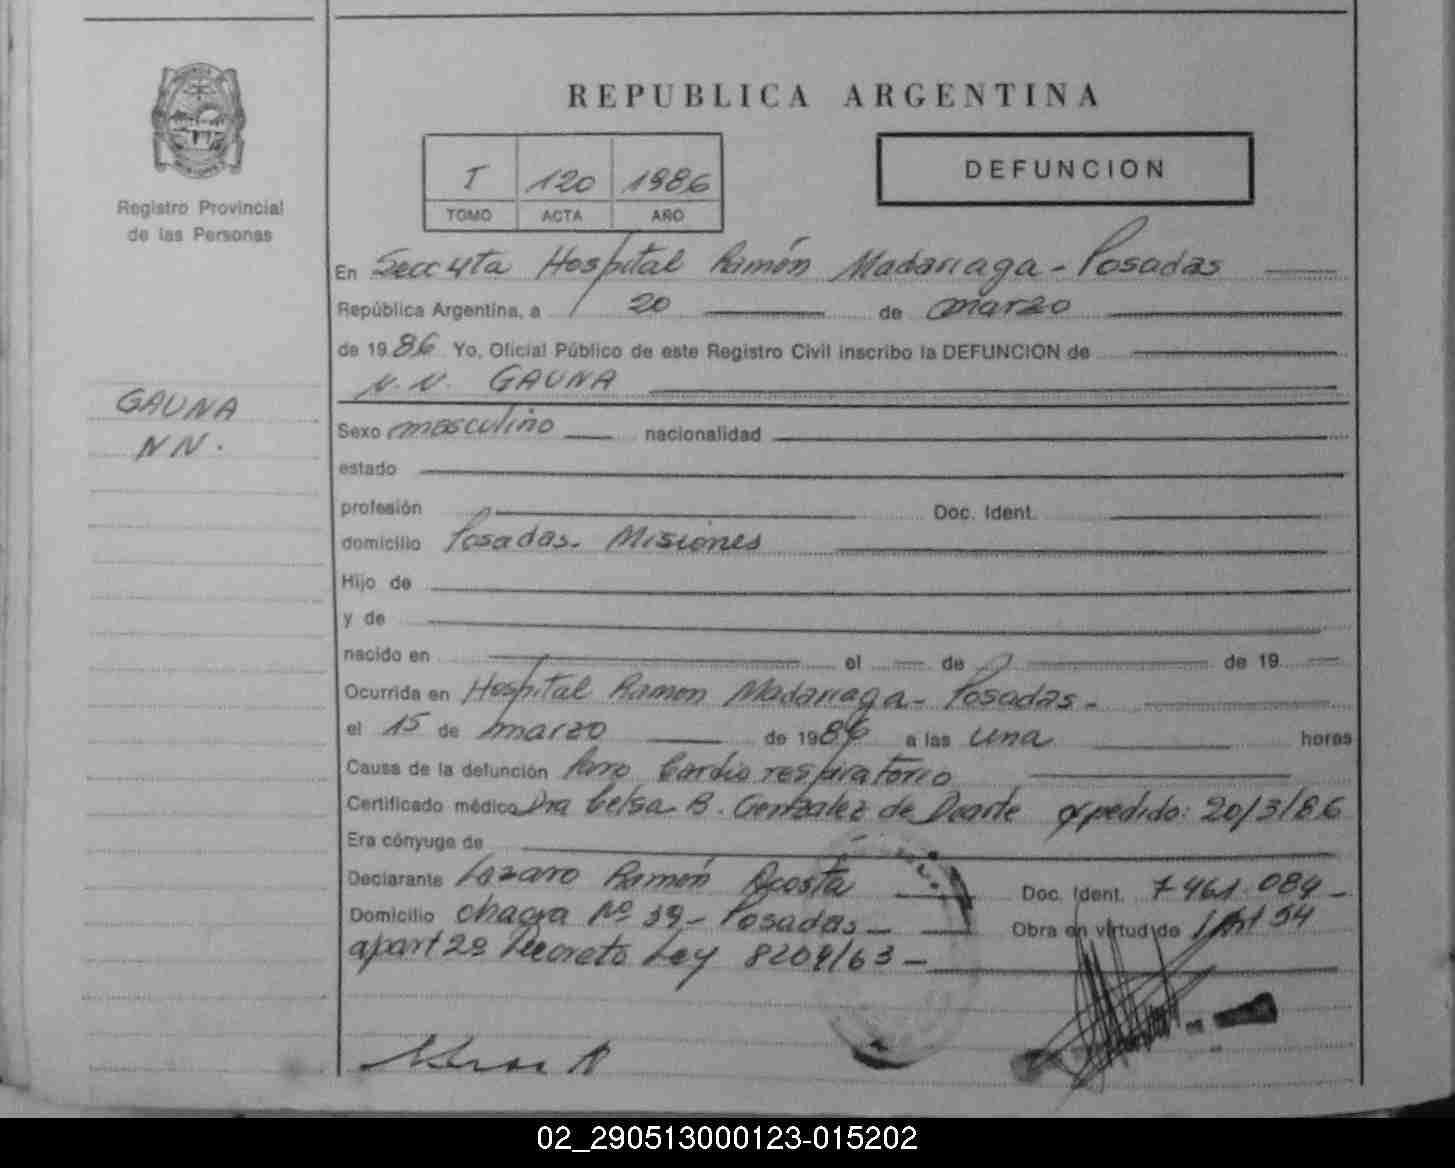 REPUBLICA ARGENTINA
DEFUNCION
T 120 1986
TOMO ACTA AÑO
Registro Provincial
de las Personas
GAUNA
NN.
En Secc 4ta Hospital Ramón Madariaga - Posadas
República Argentina, a 20 de marzo
de 1986 Yo, Oficial Público de este Registro Civil inscribo la DEFUNCION de
N.N. GAUNA
Sexo masculino nacionalidad
estado
profesión Doc. Ident.
domicilio Posadas. Misiones
Hijo de
y de
nacido en el de de 19
Ocurrida en Hospital Ramon Madariaga - Posadas -
el 15 de marzo de 1986 a las una horas
Causa de la defunción Paro Cardio respiratorio
Certificado médico Dra Celsa B. Gonzalez de Duarte expedido: 20/3/86
Era cónyuge de
Declarante Lazaro Ramón Acosta Doc. Ident. 7461.084 -
Domicilio chacra Nº 39 - Posadas - Obra en virtud de Art 54
apart 2º Decreto Ley 8204/63 -
02_290513000123-015202